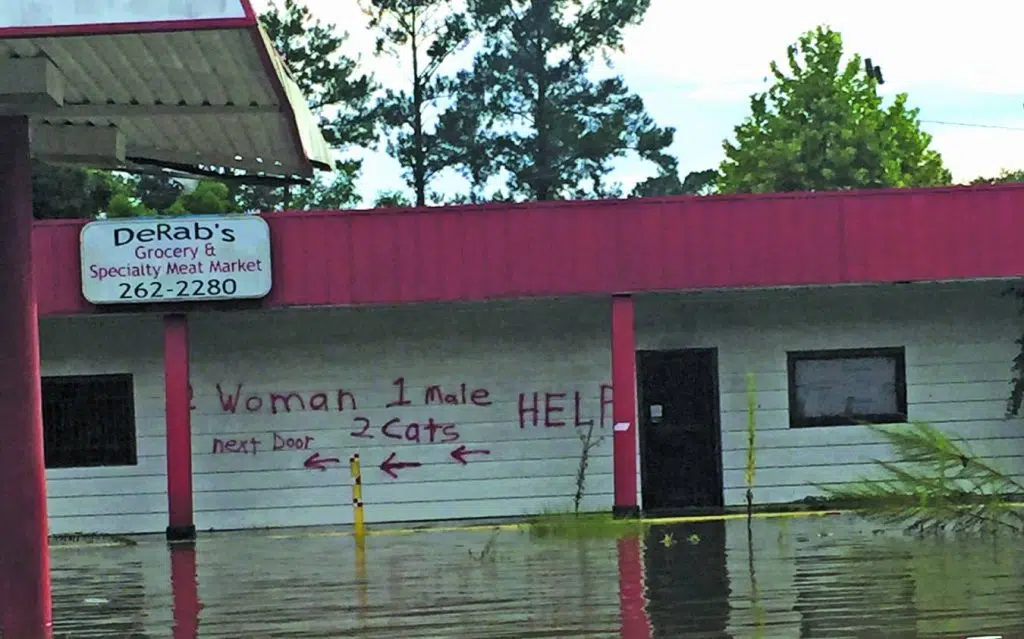 DeRab's
Grocery &
Specialty Meat Market
262-2280
2 Woman 1 Male HELP
next Door 2 Cats